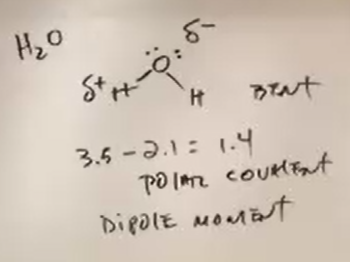 H₂O
δ⁻
:O:
δ⁺ H H BENT
3.5 - 2.1 = 1.4
POLAR COVALENT
DIPOLE MOMENT